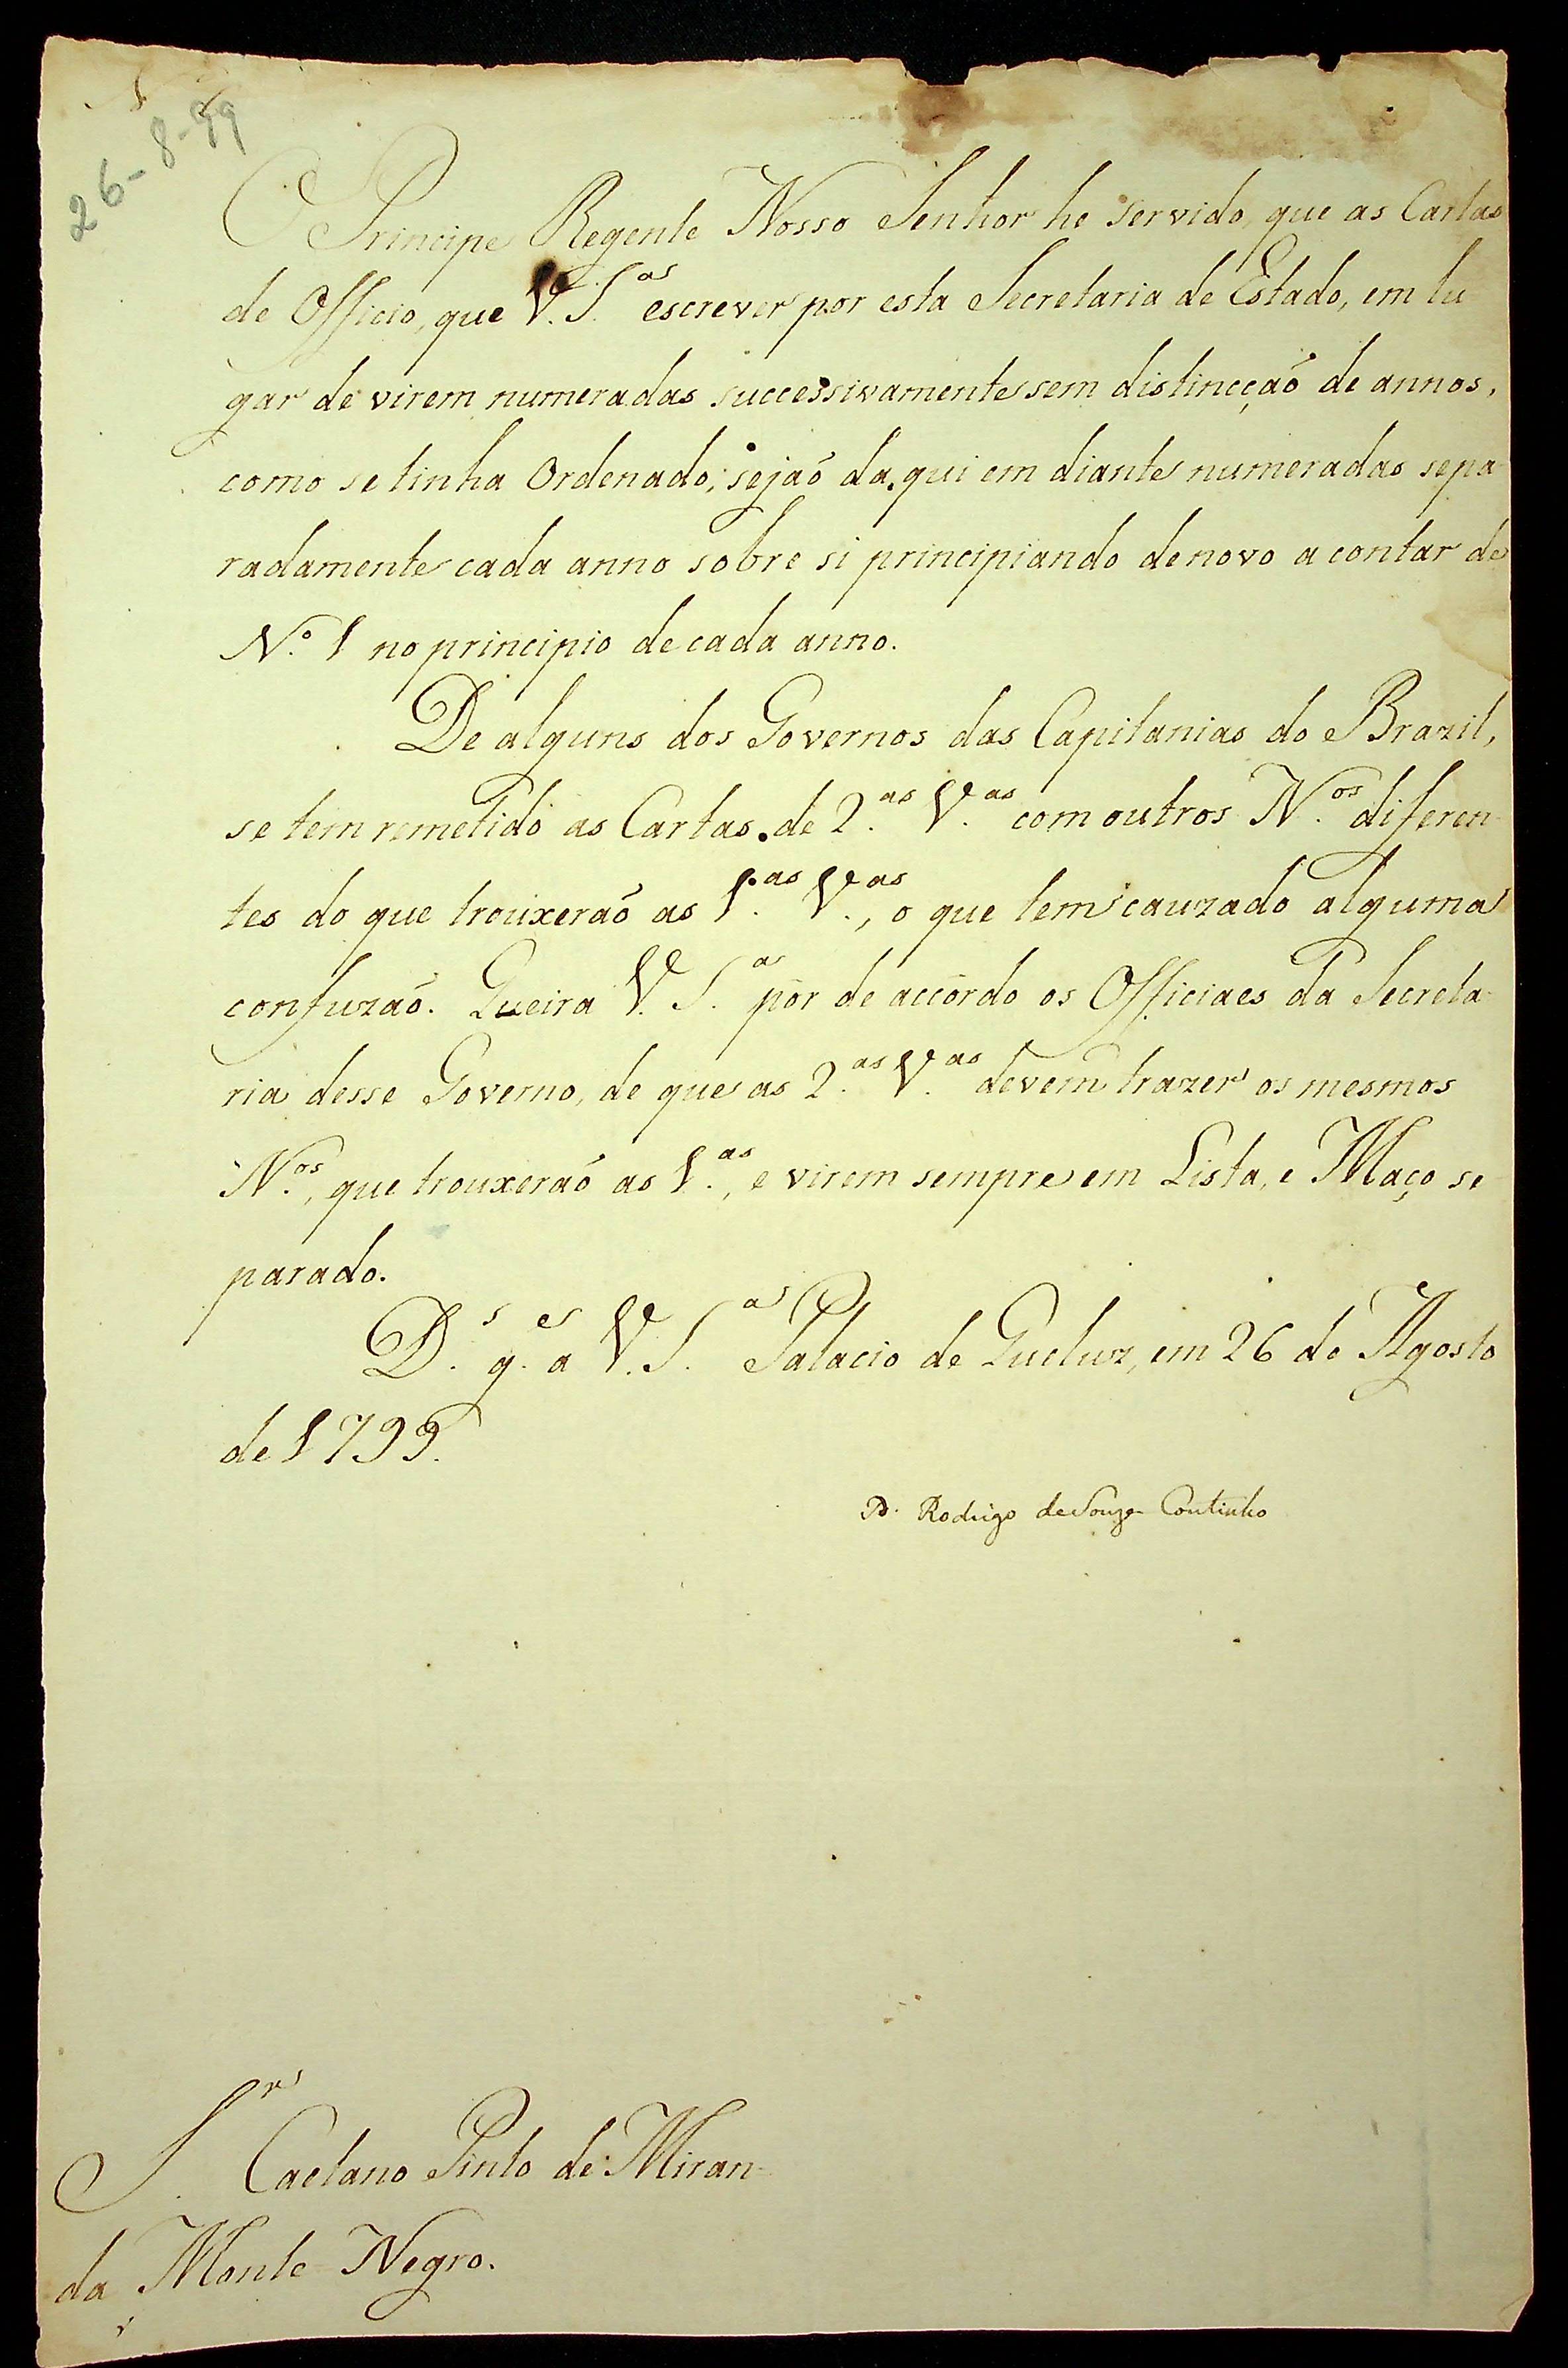 26-8-99
O Principe Regente Nosso Senhor he servido, que as Cartas
de Officio, que V. S.ª escrever por esta Secretaria de Estado, em lu
gar de virem numeradas successivamente sem distincção de annos,
como se tinha Ordenado, sejaõ da qui em diante numeradas sepa
radamente cada anno sobre si principiando de novo a contar de
N.º 1 no principio de cada anno.
De alguns dos Governos das Capitanias do Brazil,
se tem remetido as Cartas de 2.as V.as com outros N.os diferen-
tes do que trouxeraõ as 1.as V.as, o que tem cauzado alguma
confuzaõ. Queira V. S.ª pôr de accôrdo os Officiaes da Secreta-
ria desse Governo, de que as 2.as V.as devem trazer os mesmos
N.os, que trouxeraõ as 1.as, e virem sempre em Lista, e Maço se
parado.
D.s g.e a V. S.ª Palacio de Queluz, em 26 de Agosto
de 1799.
D. Rodrigo de Souza Coutinho
S.r Caetano Pinto de Miran-
da Monte Negro.